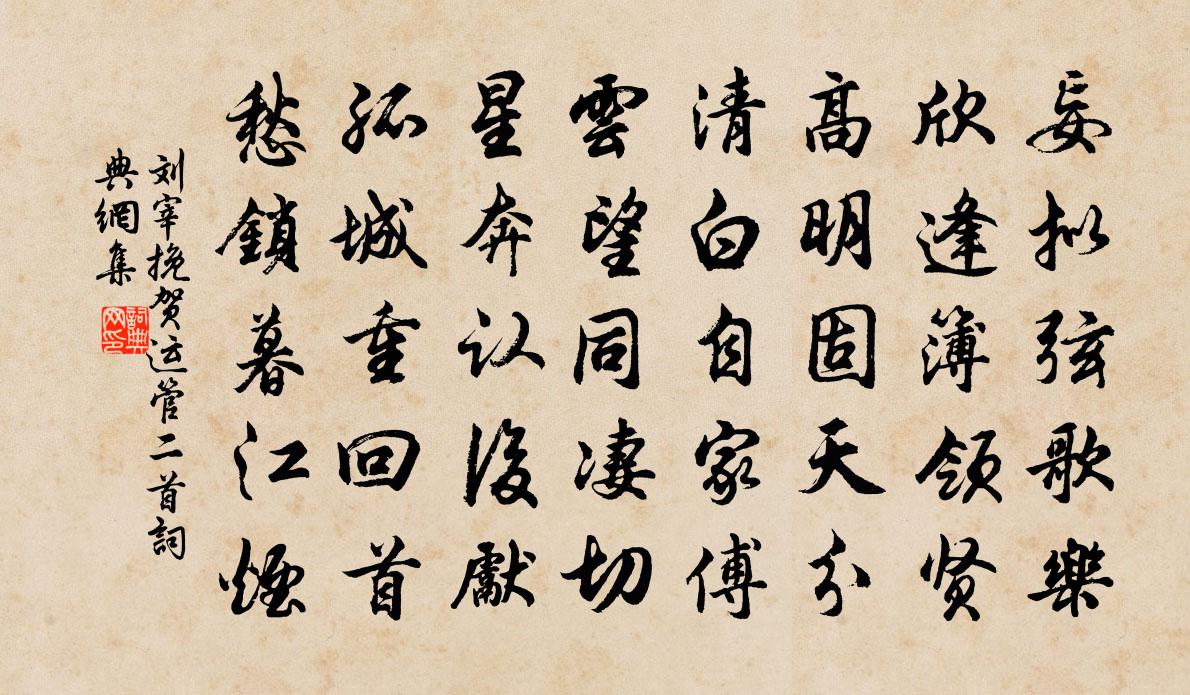 妄拟弦歌樂
欣逢簿领贤
高明固天分
清白自家傅
雲望同凄切
星奔认後獻
孤城重回首
愁鎖暮江煙
刘宰挽贺运管二首詞
典網集
詞典
网印